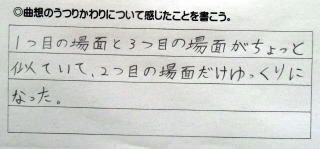 ◎曲想のうつりかわりについて感じたことを書こう。
1つ目の場面と3つ目の場面がちょっと
似ていて、2つ目の場面だけゆっくりに
なった。